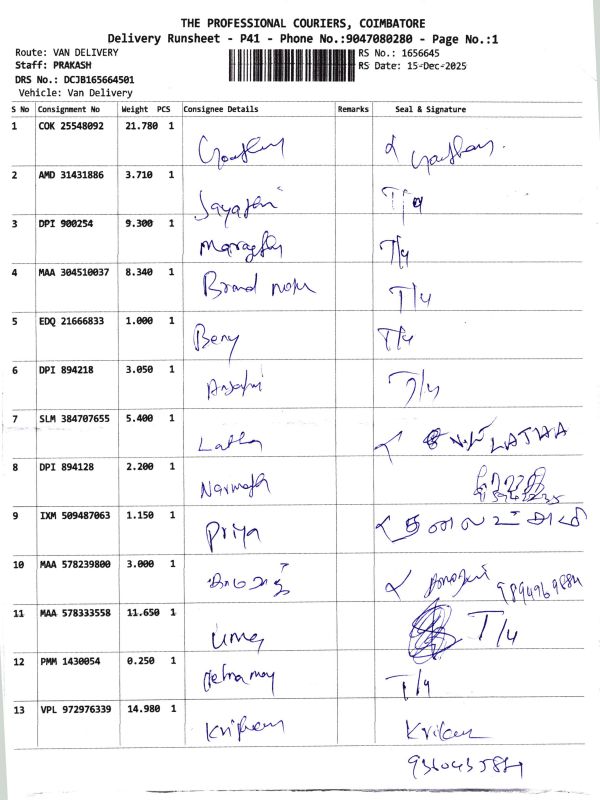 THE PROFESSIONAL COURIERS, COIMBATORE
Delivery Runsheet - P41 - Phone No.:9047080280 - Page No.:1
Route: VAN DELIVERY RS No.: 1656645
Staff: PRAKASH RS Date: 15-Dec-2025
DRS No.: DCJB165664501
Vehicle: Van Delivery
S No Consignment No Weight PCS Consignee Details Remarks Seal & Signature
1 COK 25548092 21.780 1
2 AMD 31431886 3.710 1 Jayashri T/4
3 DPI 900254 9.300 1 T/4
4 MAA 304510037 8.340 1 Brand T/4
5 EDQ 21666833 1.000 1 Beny T/4
6 DPI 894218 3.050 1 T/4
7 SLM 384707655 5.400 1 Latha LATHA
8 DPI 894128 2.200 1
9 IXM 509487063 1.150 1 Priya
10 MAA 578239800 3.000 1
11 MAA 578333558 11.650 1 Uma T/4
12 PMM 1430054 0.250 1 T/4
13 VPL 972976339 14.980 1